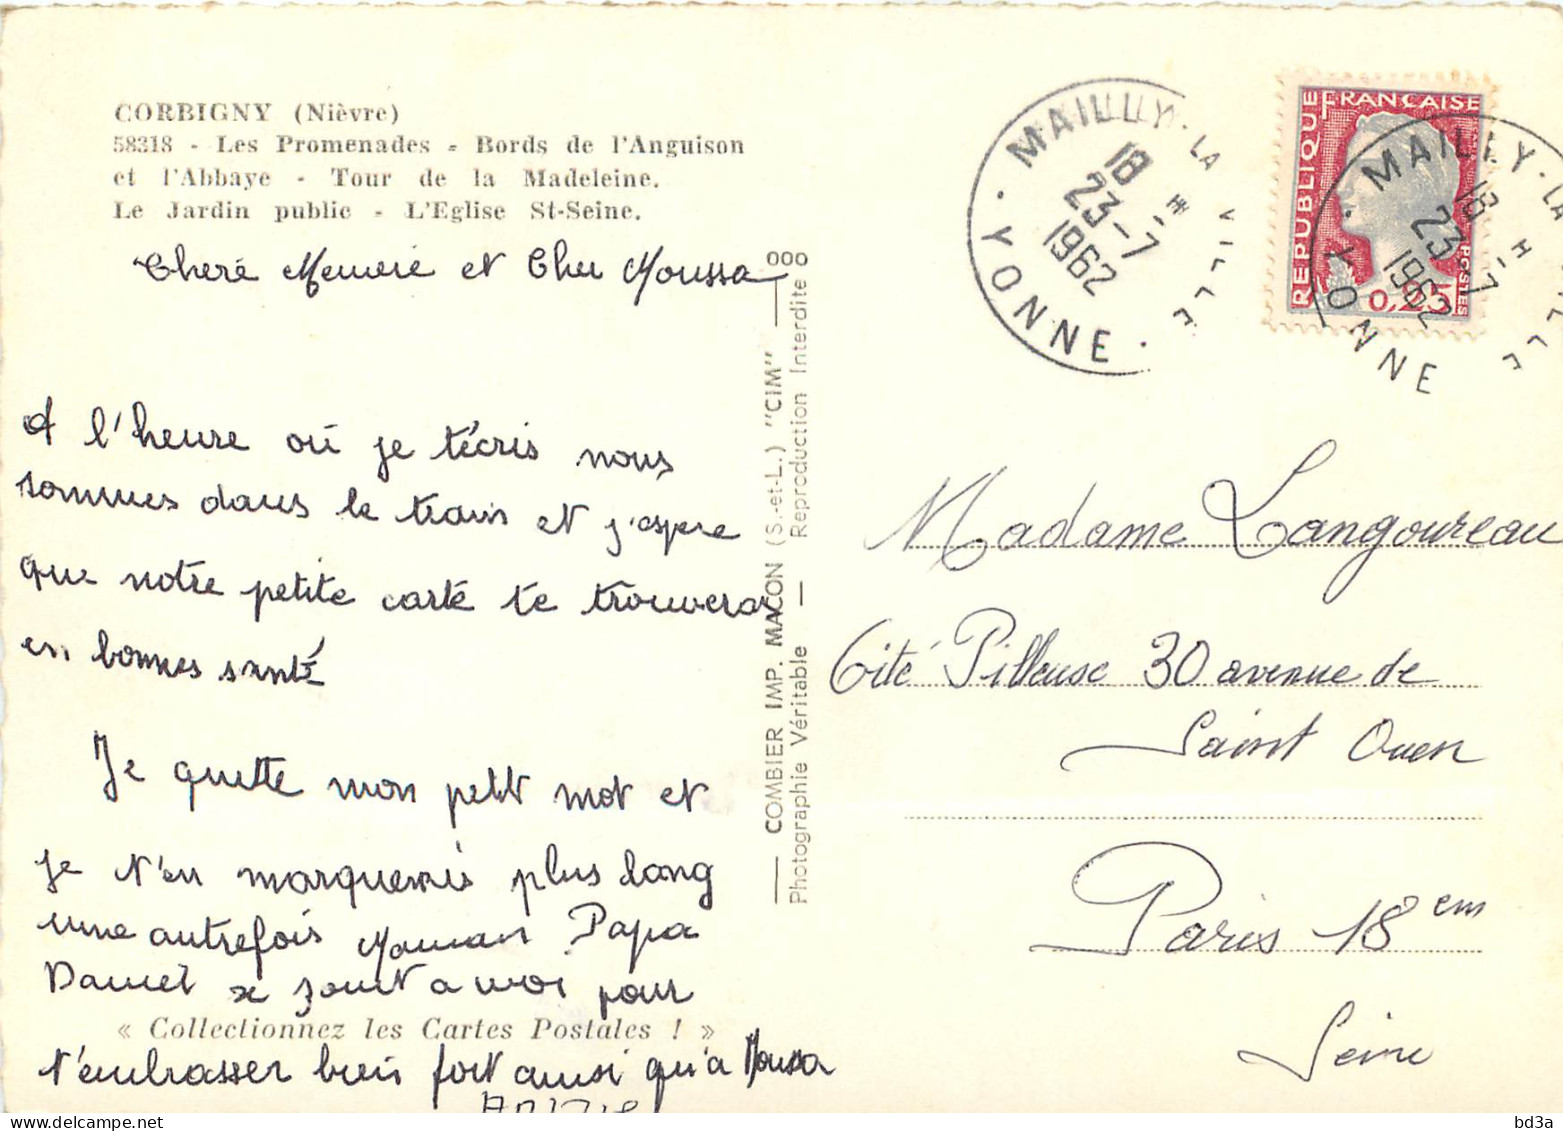 CORBIGNY (Nièvre)
58318 - Les Promenades - Bords de l'Anguison
et l'Abbaye - Tour de la Madeleine.
Le Jardin public - L'Eglise St-Seine.
Cheré Memere et Cher Moussa
A l'heure où je t'écris nous
sommes dans le train et j'espere
que notre petite carte te trouveras
en bonnes santé
Je quitte mon petit mot et
je t'en marquerais plus long
une autrefois Maman Papa
Daniel se joint a moi pour
t'embrasser bien fort ainsi qu'a Moussa
« Collectionnez les Cartes Postales ! »
COMBIER IMP. MACON (S.-et-L.) "CIM"
Photographie Véritable — Reproduction Interdite
000
MAILLY-LA VILLE
18 H
23-7
1962
YONNE
REPUBLIQUE FRANÇAISE
POSTES
0,25
MAILLY-LA VILLE
18 H
23-7
1962
YONNE
Madame Langoureau
Cité Pilleuse 30 avenue de
Saint Ouen
Paris 18em
Seine
bd3a